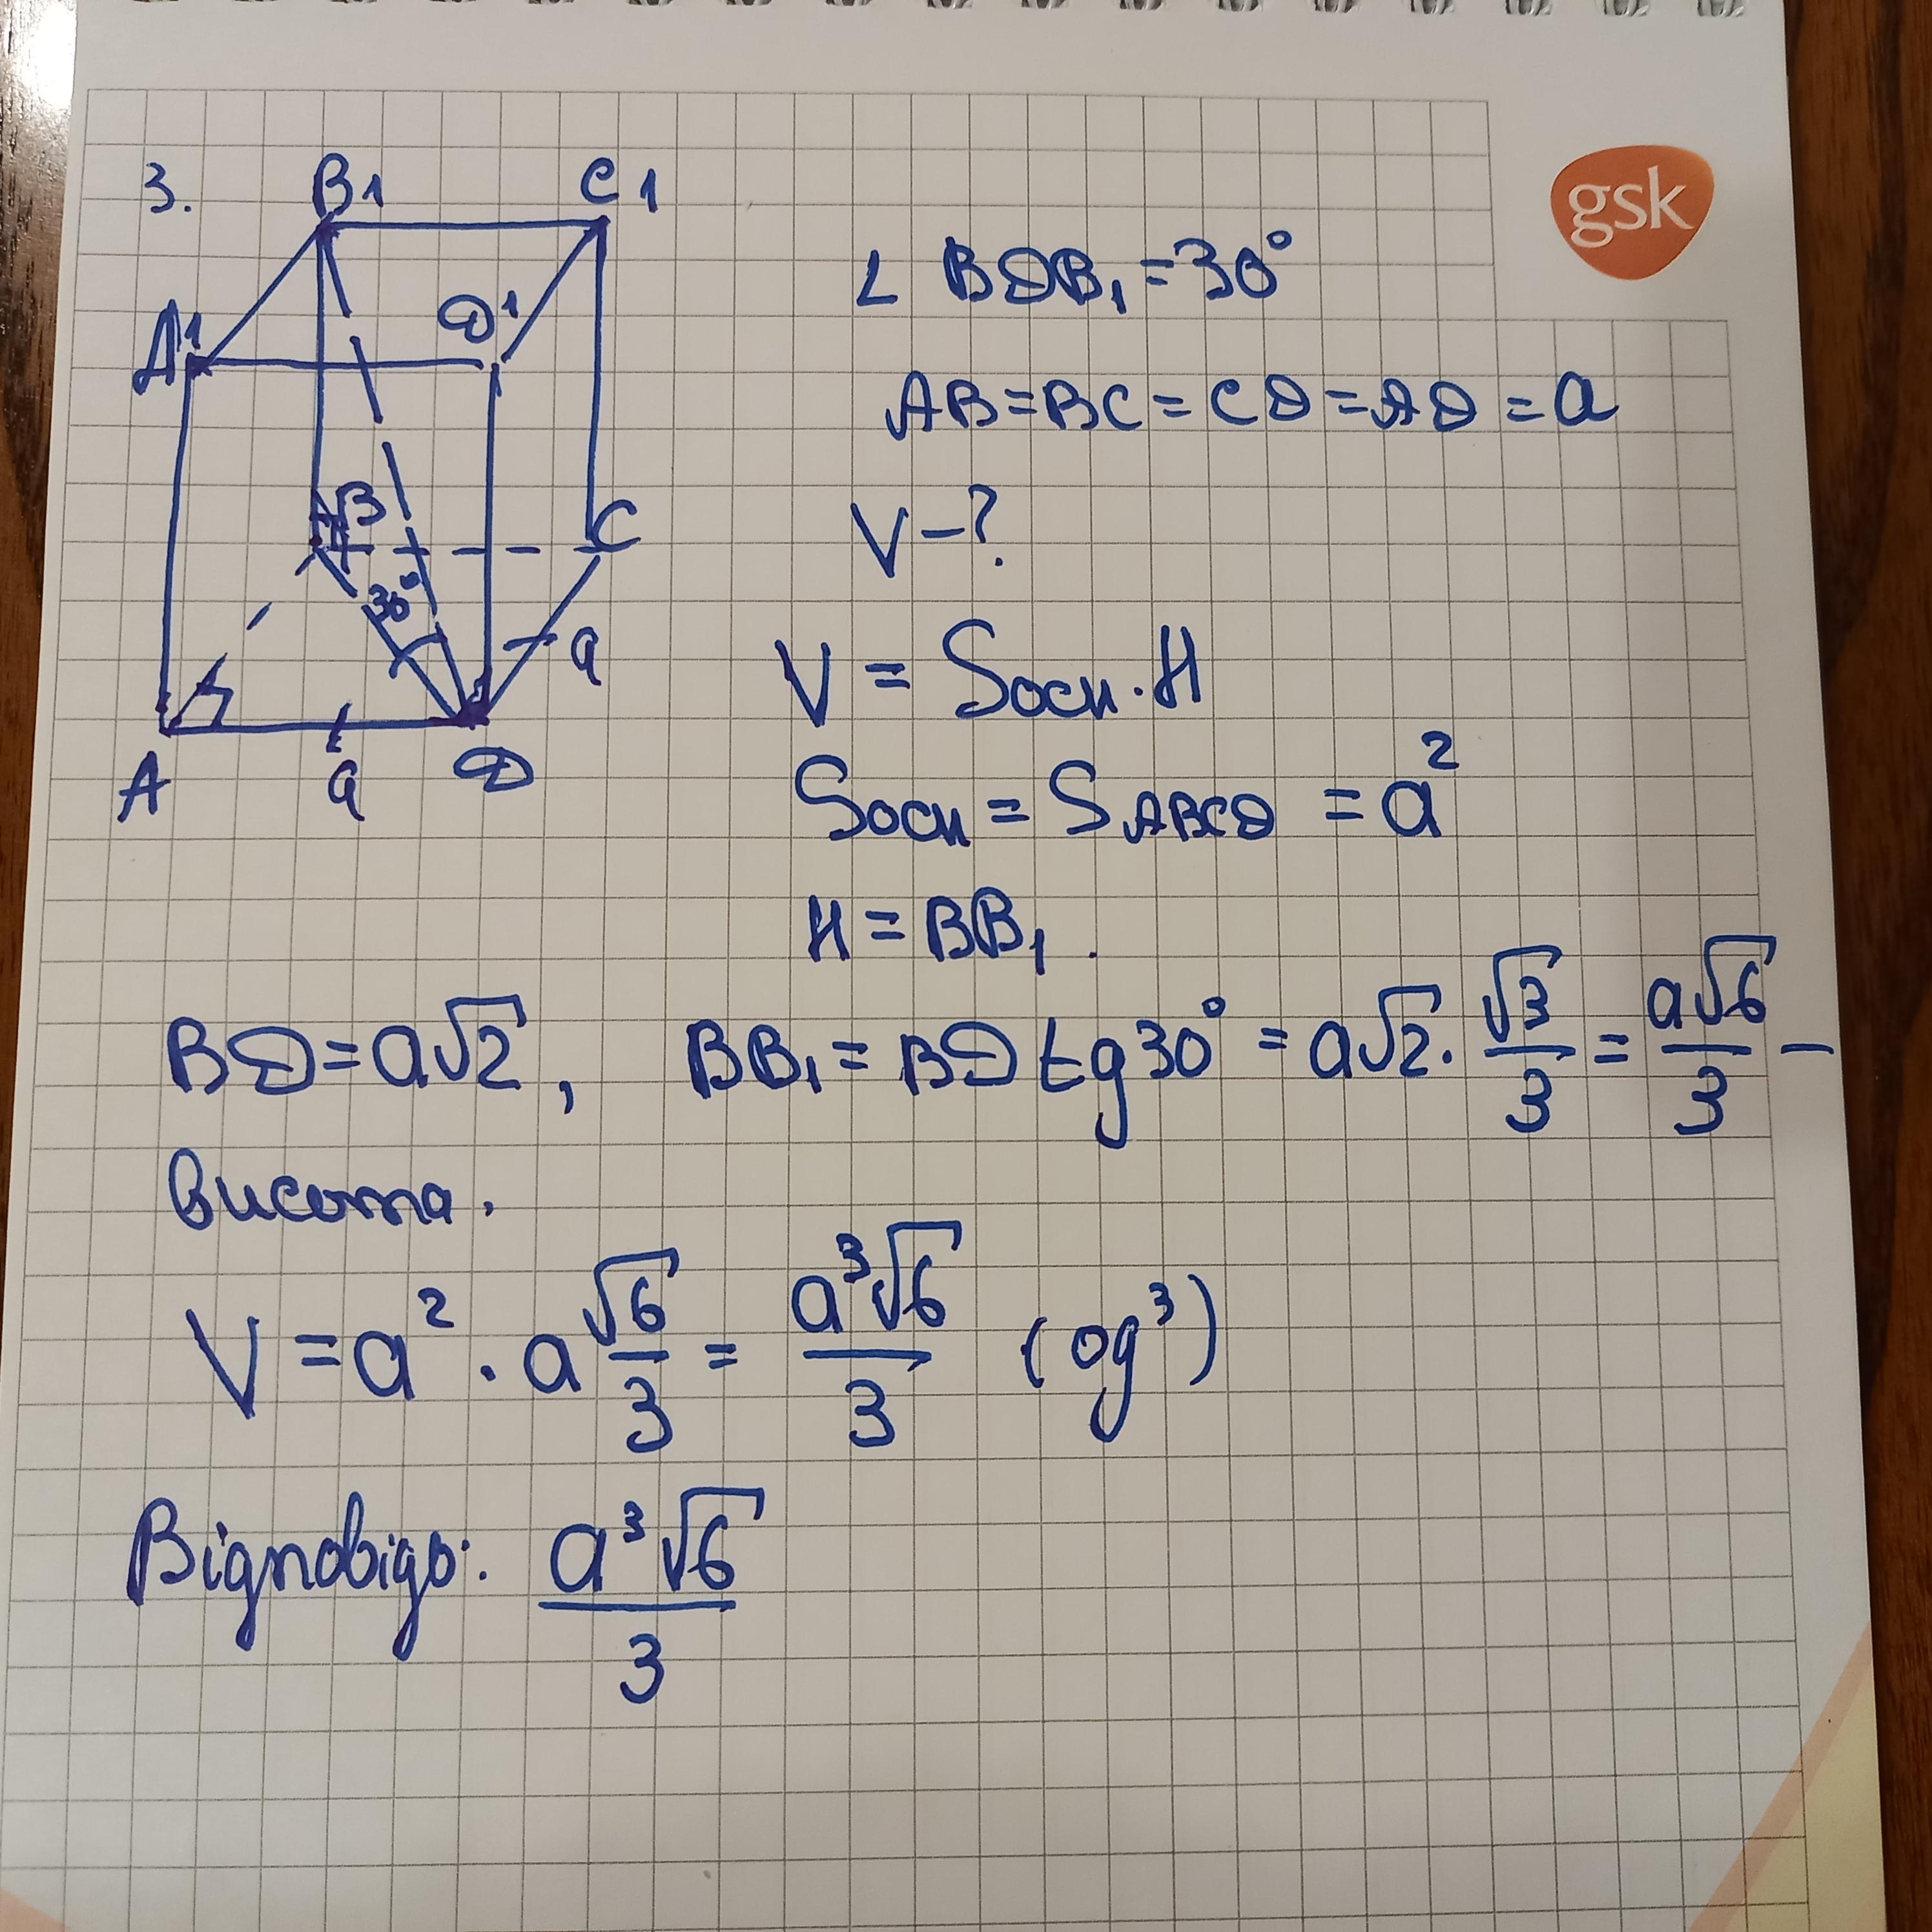 3.
B1 C1
A1 D1
B C
30°
a
A a D
gsk
∠ BDB₁ = 30°
AB = BC = CD = AD = a
V - ?
V = Sосн · H
Sосн = S ABCD = a²
H = BB₁.
BD = a√2, BB₁ = BD tg 30° = a√2 · √3/3 = a√6/3 –
висота.
V = a² · a √6/3 = a³√6/3 (од³)
Відповідь: a³√6/3